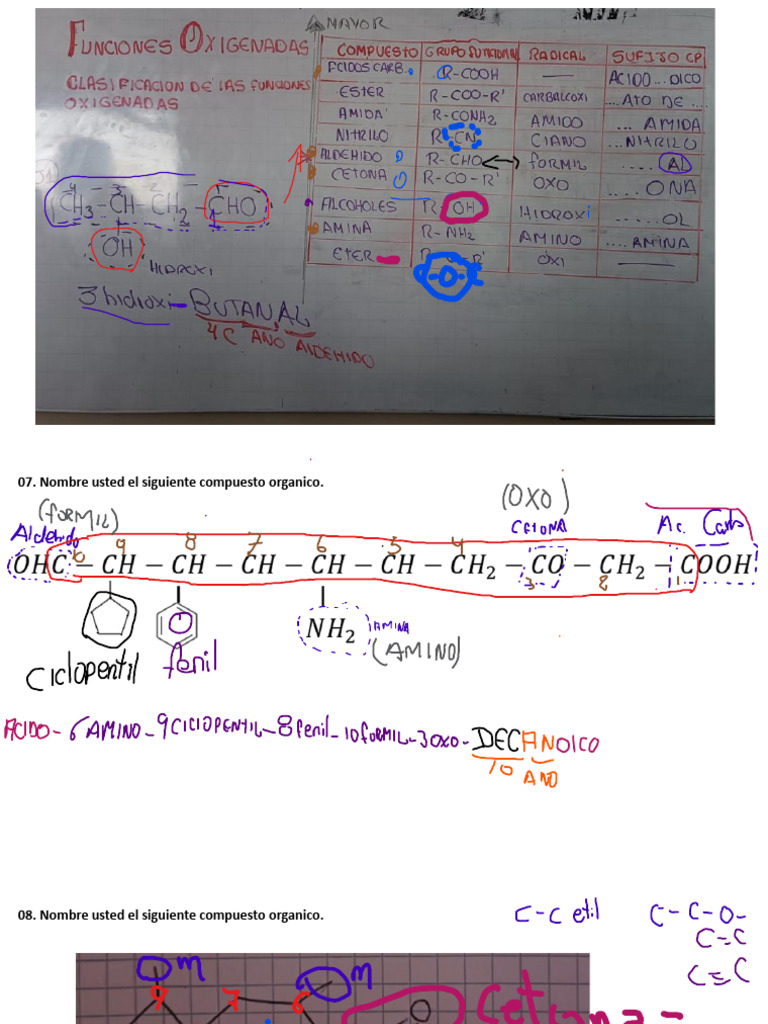 NAYOR
FUNCIONES OXIGENADAS
CLASIFICACION DE LAS FUNCIONES
OXIGENADAS
COMPUESTO GRUPO FUNCIONAL RADICAL SUFIJO CP
ACIDOS CARB. R-COOH — ACIDO...OICO
ESTER R-COO-R' CARBALCOXI ...ATO DE ...
AMIDA R-CONH2 AMIDO ... AMIDA
NITRILO R-CN CIANO ...NITRILO
ALDEHIDO R-CHO FORMIL ..... AL
CETONA R-CO-R' OXO .... ONA
ALCOHOLES R-OH HIDROXI .....OL
AMINA R-NH2 AMINO ....AMINA
ETER R-O-R' OXI —
-O-
4 3 2 1
CH3 - CH - CH2 - CHO
OH
HIDROXI
3 hidroxi-BUTANAL
4C ANO ALDEHIDO
07. Nombre usted el siguiente compuesto organico.
(FORMIL) (OXO)
Aldehido CETONA Ac. Carb
10 9 8 7 6 5 4 3 2 1
OHC – CH – CH – CH – CH – CH – CH2 – CO – CH2 – COOH
NH2 AMINA
(AMINO)
Ciclopentil fenil
ACIDO- 6 AMINO-9CICLOPENTIL-8fenil-10 FORMIL-3OXO-DECANOICO
10 ANO
08. Nombre usted el siguiente compuesto organico.
C-C etil C-C-O-
C=C
C≡C
m m
9 7 6
O
Cetona =